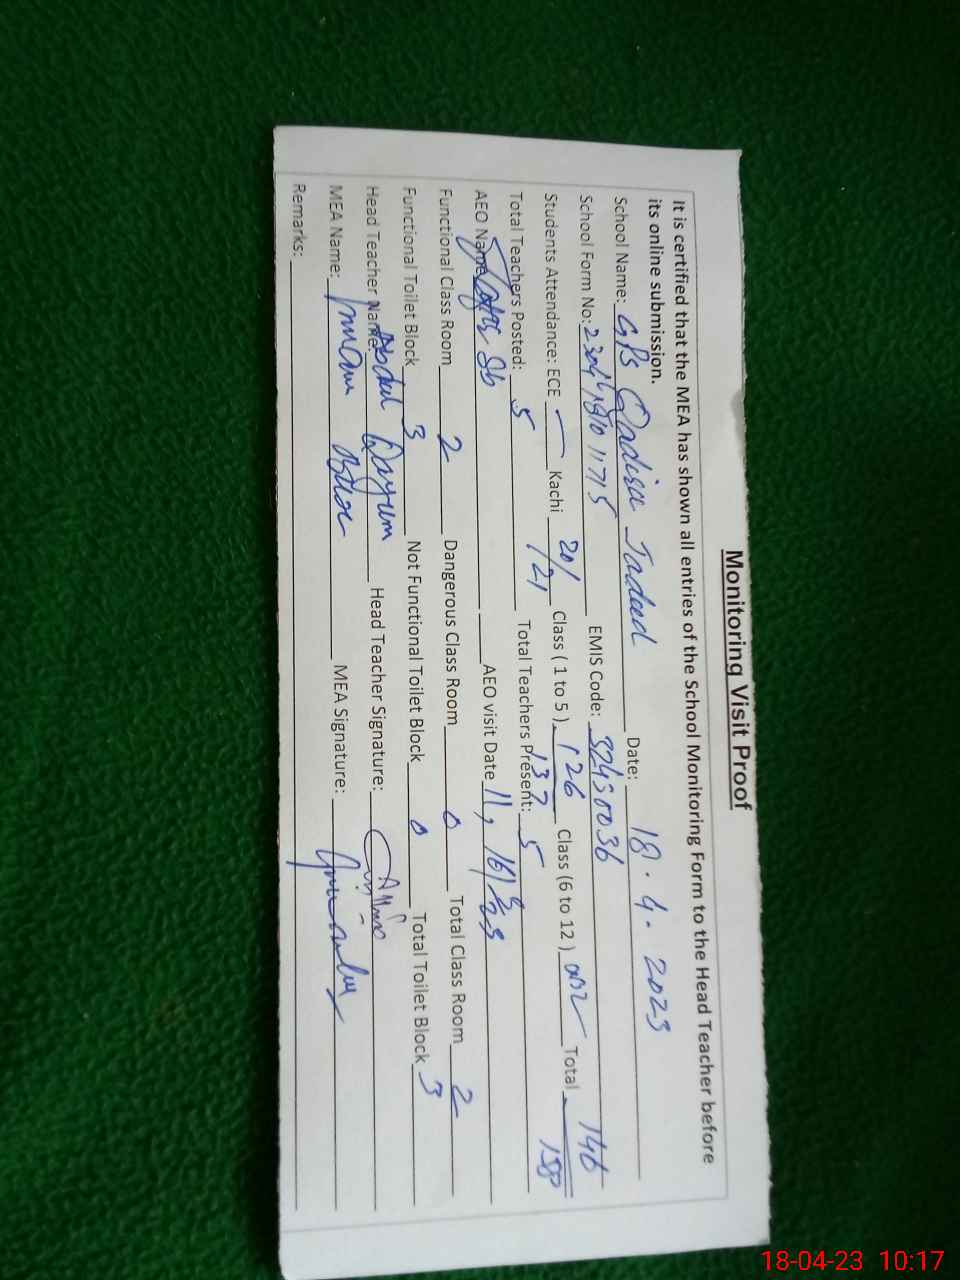 Monitoring Visit Proof
It is certified that the MEA has shown all entries of the School Monitoring Form to the Head Teacher before
its online submission.
School Name: GPS Qadira Jadeed Date: 18.4.2023
School Form No: EMIS Code: 32430036
Students Attendance: ECE — Kachi 20/21 Class ( 1 to 5 ) 126/137 Class (6 to 12 ) Total 146/158
Total Teachers Posted: 5 Total Teachers Present: 5
AEO Name: Sb AEO visit Date 11, 16/
Functional Class Room 2 Dangerous Class Room 0 Total Class Room 2
Functional Toilet Block 3 Not Functional Toilet Block 0 Total Toilet Block 3
Head Teacher Name: Abdul Qayum Head Teacher Signature:
MEA Name: MEA Signature:
Remarks:
18-04-23 10:17